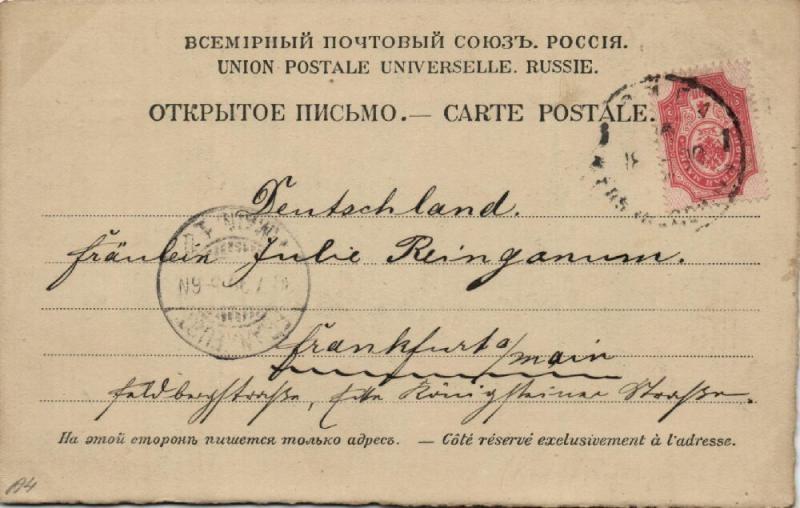 ВСЕМІРНЫЙ ПОЧТОВЫЙ СОЮЗЪ. РОССІЯ.
UNION POSTALE UNIVERSELLE. RUSSIE.
ОТКРЫТОЕ ПИСЬМО.— CARTE POSTALE.
Deutschland.
Fräulein Julie Reinganum.
Frankfurt a/Main
Feldbergstraße, Ecke Königsteiner Straße.
На этой сторонѣ пишется только адресъ. — Côté réservé exclusivement à l'adresse.